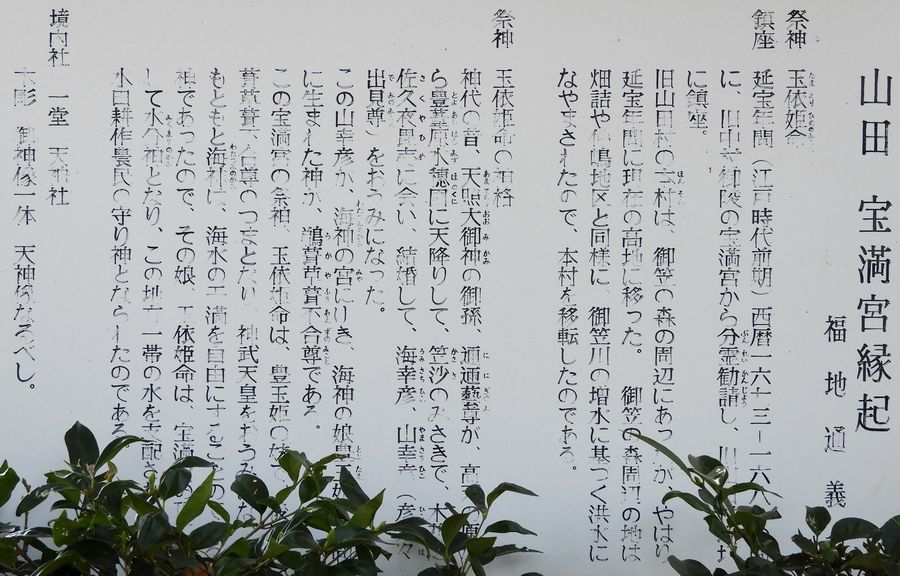 山田 宝満宮縁起
福地通義
祭神 玉依姫命
鎮座 延宝年間(江戸時代前期)西暦一六七三ー一六八
に、旧中寺御陵の宝満宮から分霊勧請し、川
に鎮座。
旧山田村の本村は、御笠の森の周辺にあったが、やはり
延宝年間に現在の高地に移った。 御笠の森周辺の地は
畑詰や仲嶋地区と同様に、御笠川の増水に基づく洪水に
なやまされたので、本村を移転したのである。
祭神 玉依姫命の神格
神代の昔、天照大御神の御孫、邇邇藝尊が、高
ら豊葦原水穂国に天降りして、笠沙のみさきで、木
佐久夜毘売に会い、結婚して、海幸彦、山幸彦(彦
出見尊)をおうみになった。
この山幸彦が、海神の宮にゆき、海神の娘豊
に生まれた神が、鵜葺草葺不合尊である。
この宝満宮の祭神、玉依姫命は、豊玉姫の妹で
葺草葺不合尊のつまとなり、神武天皇をおうみ
もともと海神は、海水の干満を自由にすることの
神であったので、その娘、玉依姫命は、宝満
して水分神となり、この地方一帯の水を支配さ
水口耕作農民の守り神となられたのである
境内社 一堂 天神社
木彫 御神像一体 天神様なるべし。